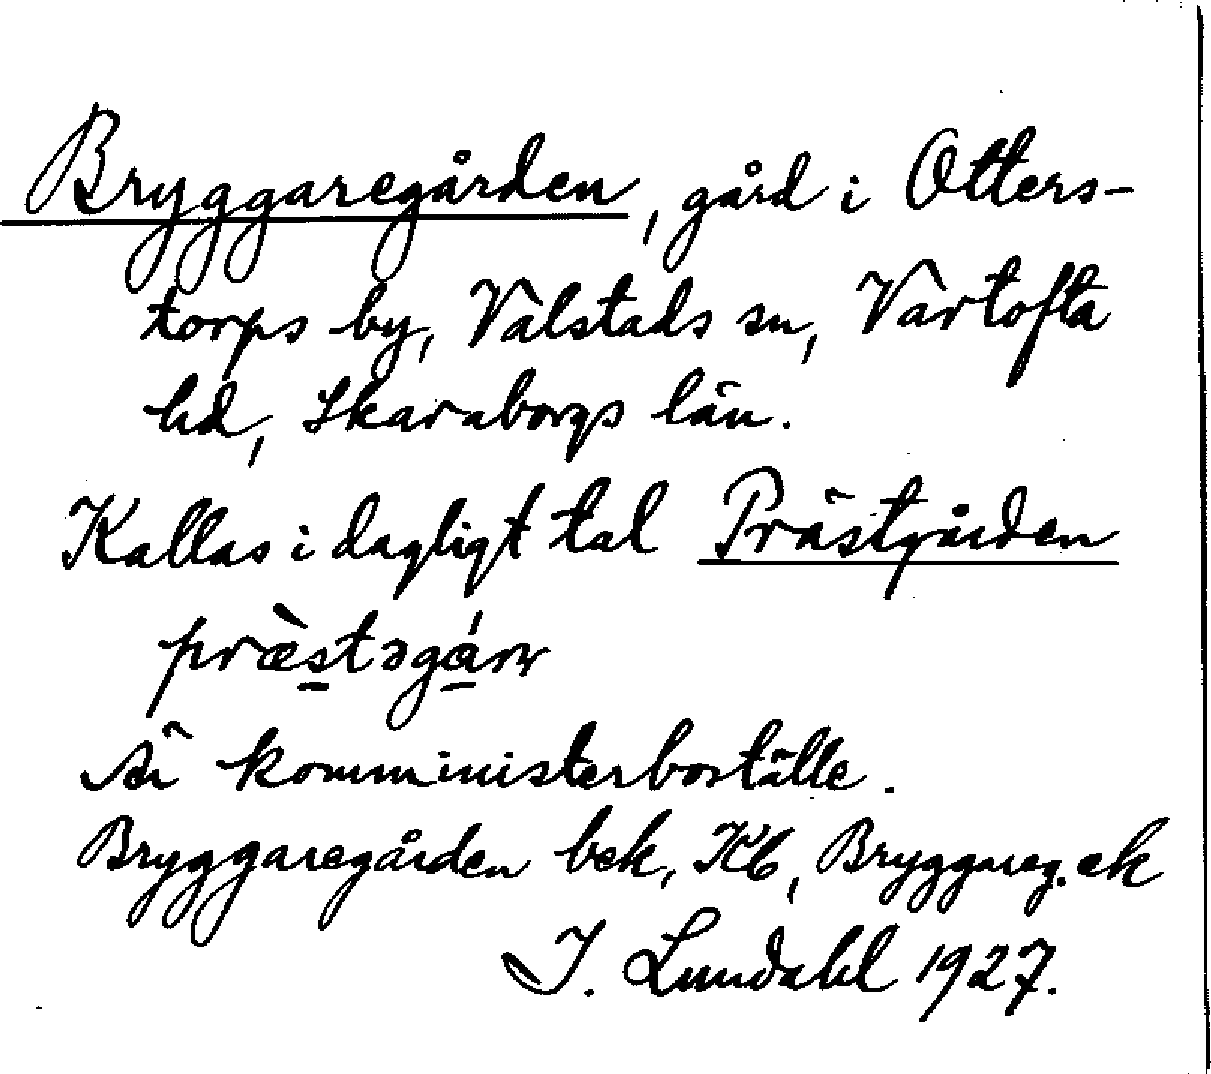 Bryggaregården, gård i Otters-
torps by, Valstads sn, Vartofta
hd, Skaraborgs län.
Kallas i dagligt tal Prästgården
præ̀stəgán
Är komministerboställe.
Bryggaregården bek, Kb, Bryggareg. ek
I. Lundahl 1927.